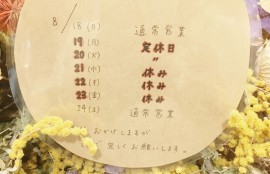 8/
18(日) 通常営業
19(月) 定休日
20(火) 〃
21(水) 休み
22(木) 休み
23(金) 休み
24(土) 通常営業
おかけしますが
宜しくお願いします。